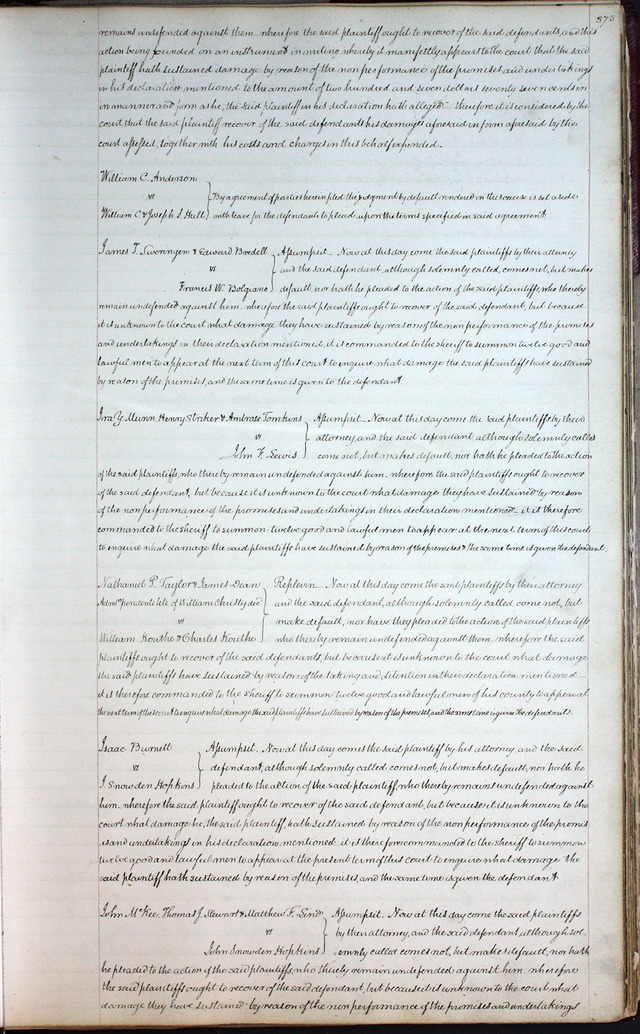 375
remains undefended against them. wherefore the said plaintiff ought to recover of the said defendants, and this
action being founded on an instrument in writing whereby it manifestly appears to the court that the said
plaintiff hath sustained damage by reason of the non performance of the promises and undertakings
in his declaration mentioned to the amount of two hundred and seven dollars seventy seven cents in
in manner and form as he, the said plaintiff in his declaration hath alleged. Therefore it is considered by the
court that the said plaintiff recover of the said defendants his damages aforesaid in form aforesaid by the
court assessed, together with his costs and charges in this behalf expended.
William C. Anderson
vs
By agreement of parties herein filed the judgment by default rendered in this cause is set aside
William C & Joseph S Hull
with leave for the defendants to plead upon the terms specified in said agreement
James T. Sweringen & Edward Bredell
Assumpsit. Now at this day come the said plaintiffs by their attorney
vs
and the said defendant, although solemnly called, comes not, but makes
Francis W. Bolgiano
default, nor hath he pleaded to the action of the said plaintiffs, who thereby
remain undefended against him. wherefore the said plaintiffs ought to recover of the said defendant, but because
it is unknown to the court what damage they have sustained by reason of the non performance of the promises
and undertakings in their declaration mentioned, it is commanded to the sheriff to summon twelve good and
lawful men to appear at the next term of this court to inquire what damage the said plaintiffs have sustained
by reason of the premises, and the same time is given to the defendant
Ira Y. Munn Henry Striker & Ambrose Tomkins
Assumpsit. Now at this day come the said plaintiffs by their
vs
attorney, and the said defendant, although solemnly called
John F. Lewis
come not, but makes default, nor hath he pleaded to the action
of the said plaintiffs, who thereby remain undefended against him. wherefore the said plaintiffs ought to recover
of the said defendant, but because it is unknown to the court what damage they have sustained by reason
of the non performance of the promises and undertakings in their declaration mentioned. it is therefore
commanded to the sheriff to summon twelve good and lawful men to appear at the next term of this court
to inquire what damage the said plaintiffs have sustained by reason of the premises & the same time is given the defendant.
Nathaniel P. Taylor & James Dean
Replevin. Now at this day come the said plaintiffs by their attorney
Admrs pendente lite of William Christy decd
and the said defendant, although solemnly called come not, but
vs
make default, nor have they pleaded to the action of the said plaintiffs
William Kouthe & Charles Kouthe
who thereby remain undefended against them. wherefore the said
plaintiffs ought to recover of the said defendants, but because it is unknown to the court what damage
the said plaintiffs have sustained by reason of the taking and detention in their declaration mentioned
it is therefore commanded to the sheriff to summon twelve good and lawful men of his county to appear at
the next term of this court to inquire what damage the said plaintiffs have sustained by reason of the premises, and the same time is given the defendants.
Isaac Burnett
Assumpsit. Now at this day comes the said plaintiff by his attorney and the said
vs
defendant, although solemnly called come not, but makes default, nor hath he
J. Snowden Hopkins
pleaded to the action of the said plaintiff, who thereby remains undefended against
him. wherefore the said plaintiff ought to recover of the said defendant, but because it is unknown to the
court what damage he, the said plaintiff, hath sustained by reason of the non performance of the promis
es and undertakings in his declaration mentioned. it is therefore commanded to the sheriff to summon
twelve good and lawful men to appear at the present term of this court to enquire what damage the
said plaintiff hath sustained by reason of the premises, and the same time is given the defendant
John McKee, Thomas J. Stewart & Matthew F.
Assumpsit. Now at this day come the said plaintiffs
vs
by their attorney, and the said defendant although sol
John Snowden Hopkins
emnly called comes not, but makes default, nor hath
he pleaded to the action of the said plaintiffs, who thereby remain undefended against him. wherefore
the said plaintiffs ought to recover of the said defendant, but because it is unknown to the court what
damage they have sustained by reason of the non performance of the promises and undertakings